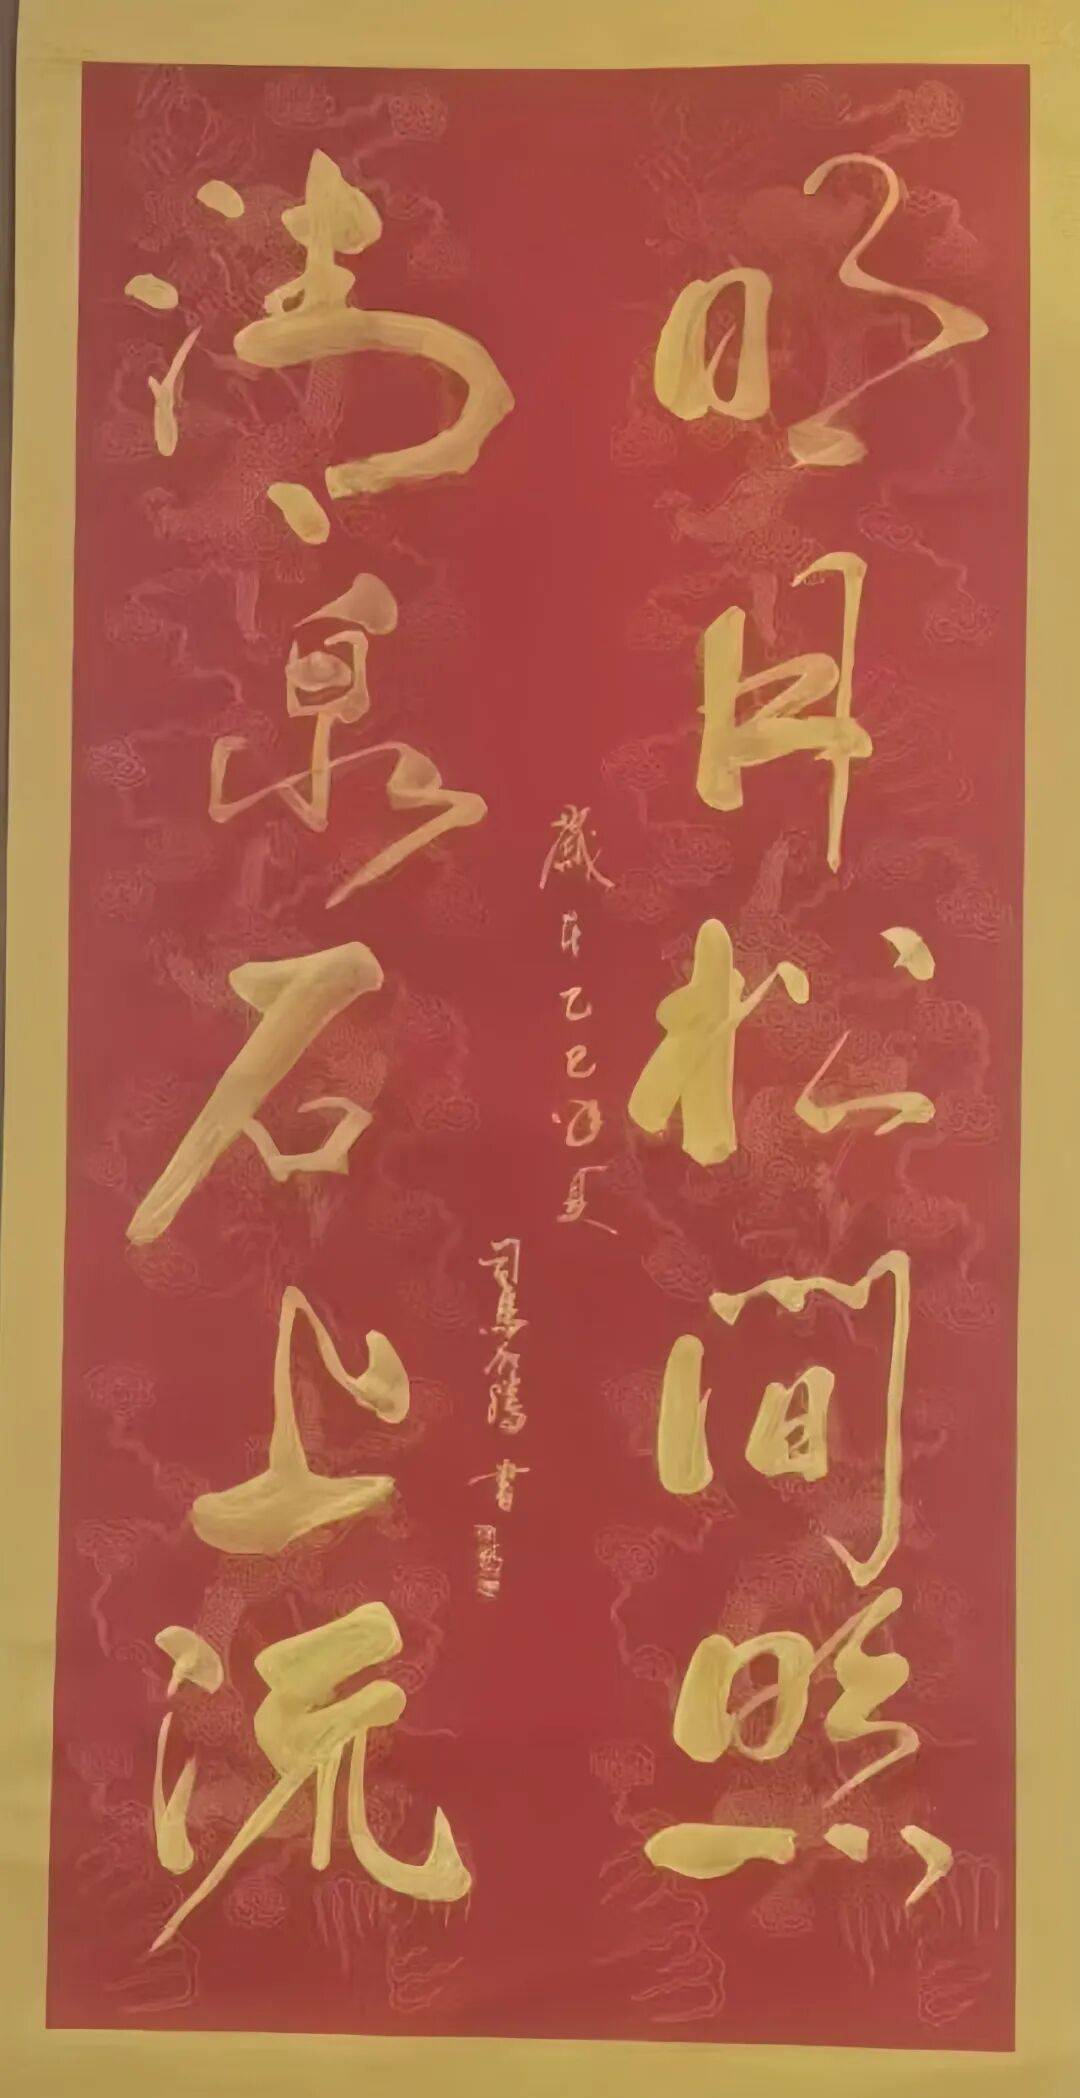 明月松间照
清泉石上流
歲在乙巳年夏
司馬 騰書